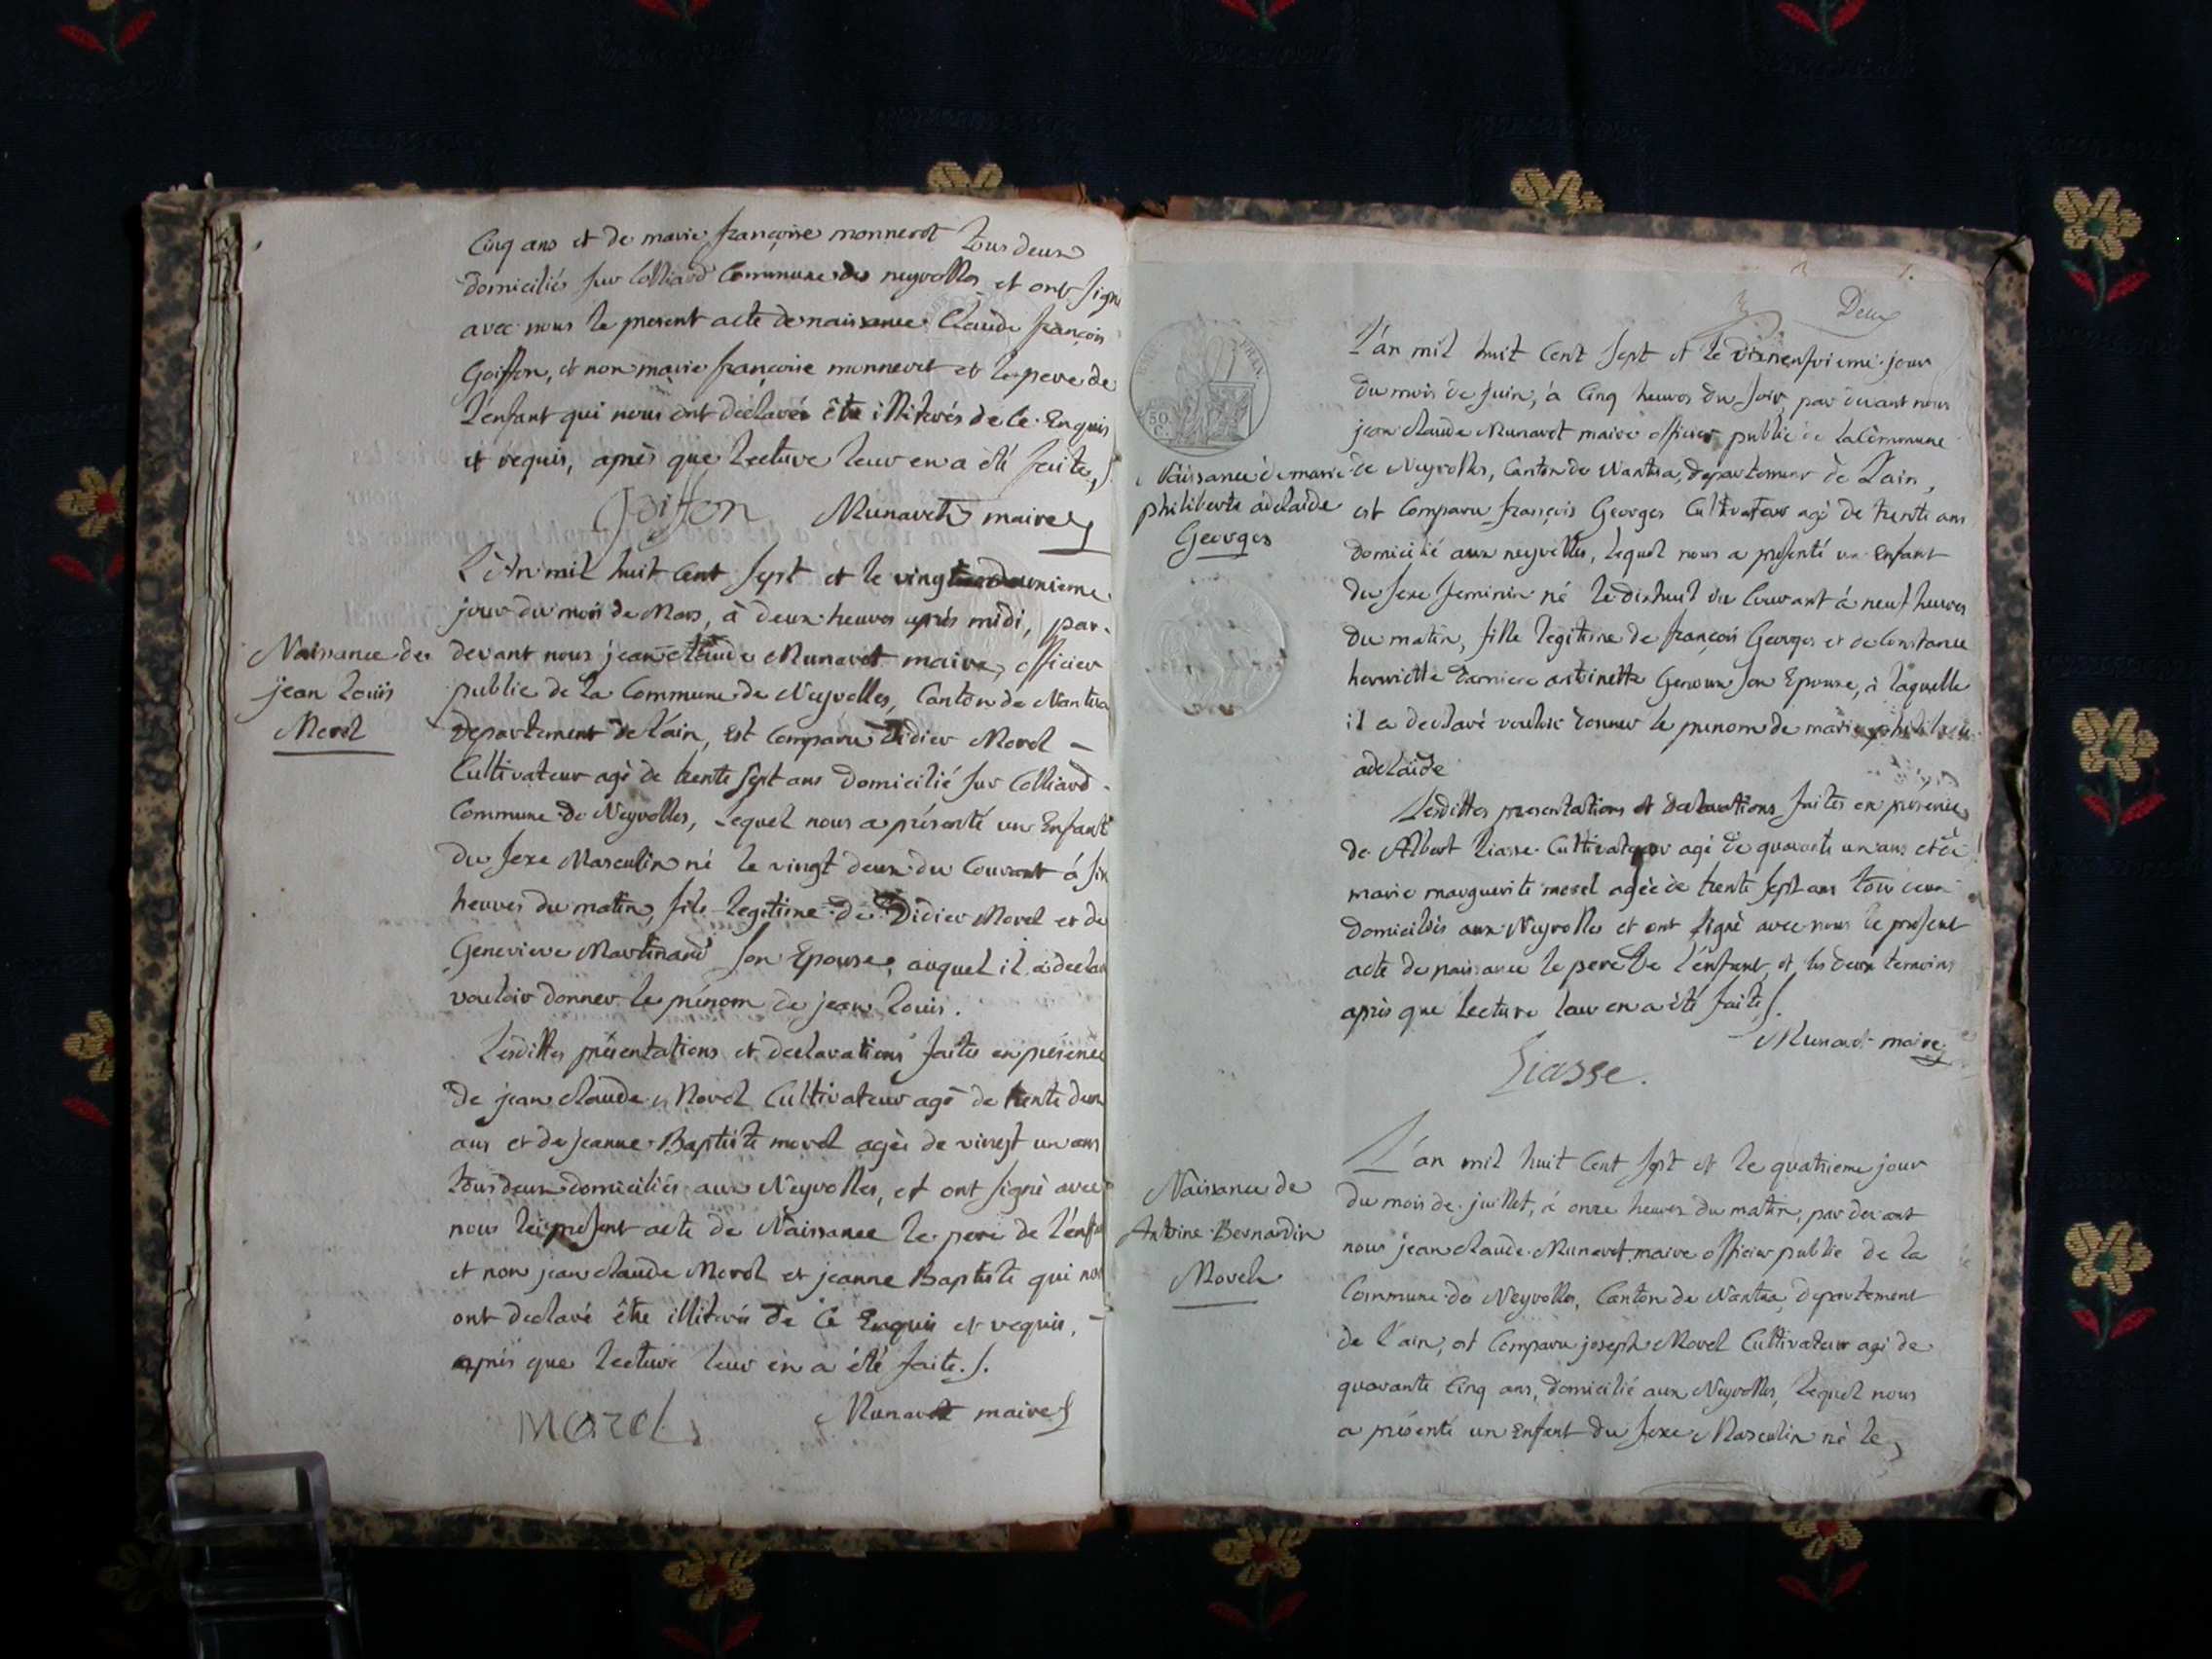 Cinq ans et de marie françoise monneret tous deux
domiciliés sur Colliard Commune des neyrolles et ont signé
avec nous le present acte de naissance Claude françois
Goiffon, et non marie françoise monneret et le pere de
l'enfant qui nous ont déclarés être illiterés de ce Enquis
et requis, après que lecture leur en a été faite,
Goiffon Munaret maire
Naissance de
jean Louis
Morel
L'An mil huit Cent sept et le vingt
jour du mois de Mars, à deux heures après midi, par-
devant nous jean claude Munaret maire, officier
public de la Commune de Neyrolles, Canton de Nantua
departement de l'ain, est Comparu Didier Morel
Cultivateur agé de trente sept ans domicilié sur Colliard
Commune de Neyrolles, lequel nous a présenté un Enfant
du sexe Masculin né le vingt deux du Courant à six
heures du matin, fils legitime de Didier Morel et de
Genevieve Martinand son Epouse, auquel il a declaré
vouloir donner le prénom de jean Louis.
Lesdittes présentations et declarations faites en présence
de jean claude Morel Cultivateur agé de trente deux
ans et de jeanne Baptiste morel agée de vingt un ans
tous deux domiciliés aux Neyrolles, et ont signé avec
nous le present acte de Naissance le pere de l'enfant
et non jean claude Morel et jeanne Baptiste qui nous
ont declaré être illiterés de ce Enquis et requis,
après que lecture leur en a été faite.
morel Munaret maire
Deux
50
C.
Naissance de marie
philiberte adelaide
Georges
L'an mil huit Cent sept et le dixneufvieme jour
du mois de juin, à Cinq heures du soir, par devant nous
jean claude Munaret maire officier public de la Commune
de Neyrolles, Canton de Nantua, departement de L'ain,
est Comparu françois Georges Cultivateur agé de trente ans
domicilié aux neyrolles, lequel nous a présenté un Enfant
du sexe feminin né le dixhuit du Courant à neuf heures
du matin, fille legitime de françois Georges et de Constance
henriette antoinette son Epouse, à laquelle
il a declaré vouloir donner le prenom de marie philiberte
adelaide
Lesdittes presentations et declarations faites en présence
de Albert Liasse Cultivateur agé de quarante un ans et de
marie marguerite morel agée de trente sept ans tous deux
domiciliés aux Neyrolles et ont signé avec nous le présent
acte de naissance le pere de l'enfant et les deux temoins
après que lecture leur en a été faite.
Munaret maire
Liasse.
Naissance de
Antoine Bernardin
Morel
L'an mil huit Cent sept et le quatrieme jour
du mois de juillet, à onze heures du matin, par devant
nous jean claude Munaret maire officier public de la
Commune des Neyrolles, Canton de Nantua, departement
de l'ain, est Comparu joseph Morel Cultivateur agé de
quarante Cinq ans, domicilié aux Neyrolles, lequel nous
a présenté un Enfant du sexe Masculin né le